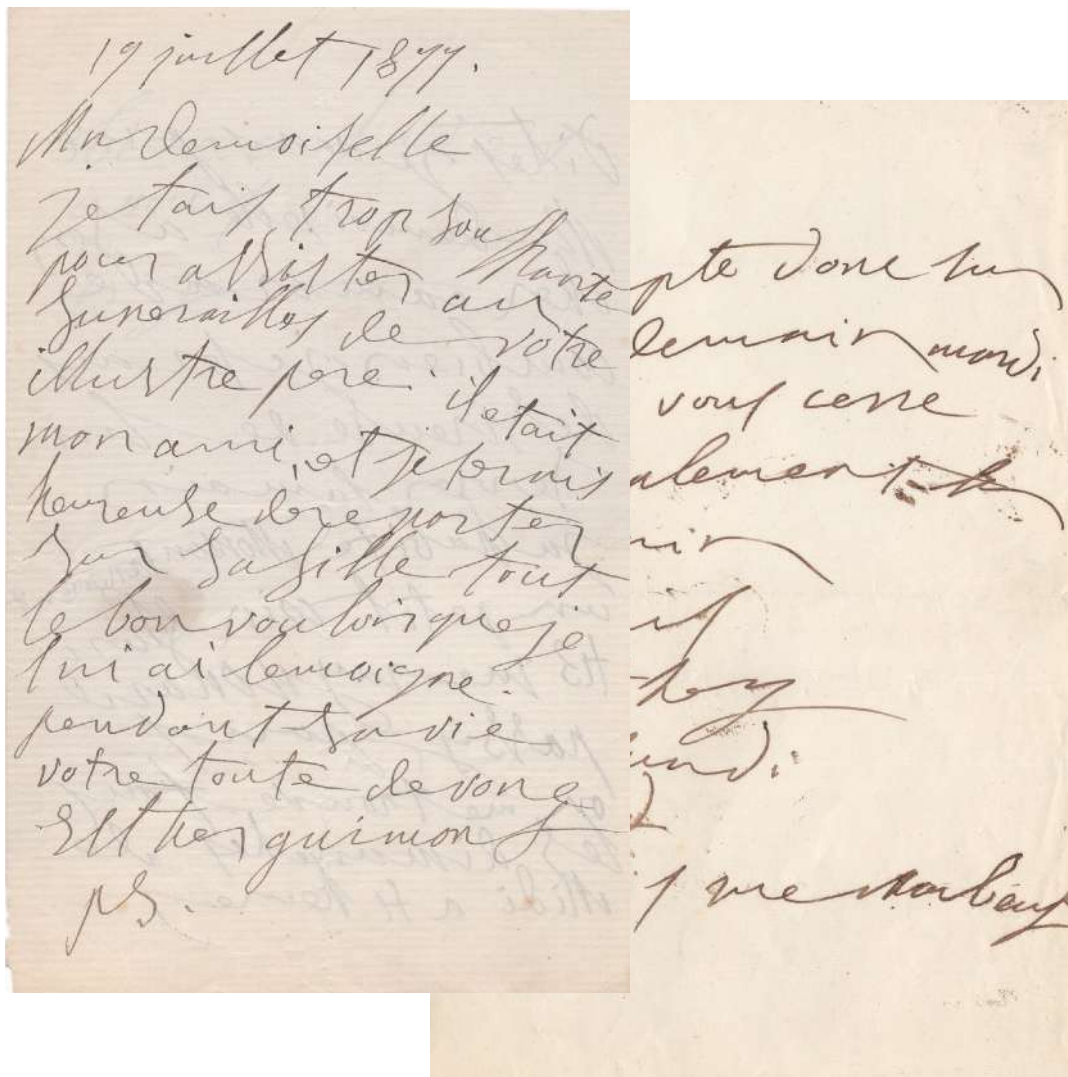 19 juillet 1877.
Mademoiselle
jetais trop souffrante
pour assister aux
funerailles de votre
illustre pere. il etait
mon ami, et je serais
heureuse de reporter
sur sa fille tout
le bon vouloir que je
lui ai temoigne.
pendant sa vie
votre toute devoue
Esther guimont
ps.
pte donc sur
demain mardi
vous cerre
alement
undi
rue